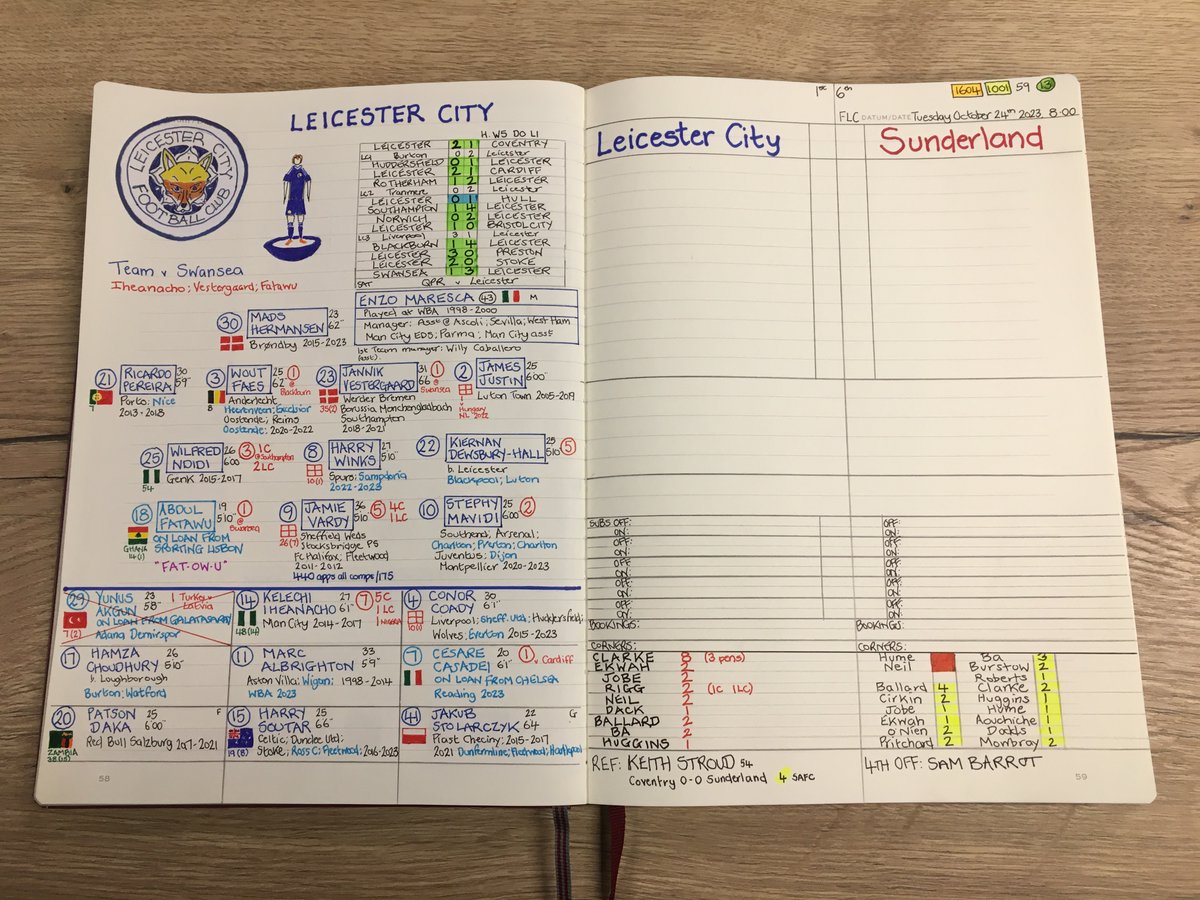 LEICESTER CITY
LEICESTER CITY FOOTBALL CLUB
H. W5 D0 L1
LEICESTER 2 1 COVENTRY
LC1 Burton 0 2 Leicester
HUDDERSFIELD 0 1 LEICESTER
LEICESTER 2 1 CARDIFF
ROTHERHAM 1 2 LEICESTER
LC2 Tranmere 0 2 Leicester
LEICESTER 0 1 HULL
SOUTHAMPTON 1 4 LEICESTER
NORWICH 0 2 LEICESTER
LEICESTER 1 0 BRISTOL CITY
LC3 Liverpool 3 1 Leicester
BLACKBURN 1 4 LEICESTER
LEICESTER 3 0 PRESTON
LEICESTER 2 0 STOKE
SWANSEA 1 3 LEICESTER
SAT QPR v Leicester
Team v Swansea
Iheanacho; Vestergaard; Fatawu
ENZO MARESCA 43 M
Played at WBA 1998-2000
Manager: Asst @ Ascoli; Sevilla; West Ham
Man City EDS; Parma; Man City asst
1st Team manager: Willy Caballero
(asst).
30 MADS HERMANSEN 23 62"
Brøndby 2015-2023
21 RICARDO PEREIRA 30 59"
7
Porto; Nice
2013-2018
3 WOUT FAES 25 62" 1 @ Blackburn
8
Anderlecht
Heerenveen; Excelsior
Oostende; Reims
Oostende; 2020-2022
23 JANNIK VESTERGAARD 31 66" 1 @ Swansea
35(2)
Werder Bremen
Borussia Monchengladbach
Southampton
2018-2021
2 JAMES JUSTIN 25 600"
1 Hungary NL 2022
Luton Town 2005-2019
25 WILFRED NDIDI 26 600" 3 1C @Southampton 2LC
54
Genk 2015-2017
8 HARRY WINKS 27 510"
10(1)
Spurs; Sampdoria
2022-2023
22 KIERNAN DEWSBURY-HALL 25 510" 5
b. Leicester
Blackpool; Luton
18 ABDUL FATAWU 19 510" 1 @ Swansea
GHANA 14(1)
ON LOAN FROM
SPORTING LISBON
"FAT-OW-U"
9 JAMIE VARDY 36 510" 5 4C 1LC
26(7)
Sheffield Weds
Stocksbridge PS
FC Halifax; Fleetwood
2011-2012
440 apps all comps/175
10 STEPHY MAVIDI 25 600" 2
Southend; Arsenal;
Charlton; Preston; Charlton
Juventus; Dijon
Montpellier 2020-2023
29 YUNUS AKGUN 23 58" 1 Turkey v Latvia
7(2)
ON LOAN FROM GALATASARAY
Adana Demirspor
14 KELECHI IHEANACHO 27 61" 7 5C 1LC 1 NIGERIA
48(14)
Man City 2014-2017
4 CONOR COADY 30 61"
10(1)
Liverpool; Sheff. Utd; Huddersfield;
Wolves; Everton 2015-2023
17 HAMZA CHOUDHURY 26 510"
b. Loughborough
Burton; Watford
11 MARC ALBRIGHTON 33 59"
Aston Villa; Wigan; 1998-2014
WBA 2023
7 CESARE CASADEI 20 61" 1 v. Cardiff
ON LOAN FROM CHELSEA
Reading 2023
20 PATSON DAKA 25 600" F
ZAMBIA 38(18)
Red Bull Salzburg 2017-2021
15 HARRY SOUTAR 25 66"
19(8)
Celtic; Dundee Utd;
Stoke; Ross C; Fleetwood; 2016-2023
41 JAKUB STOLARCZYK 22 64 G
Piast Checiny; 2015-2017
2021 Dunfermline; Fleetwood; Hartlepool
58
1st 6th 1604 1001 59 13
FLC DATUM/DATE Tuesday October 24th 2023 8:00
Leicester City Sunderland
SUBS OFF: OFF:
ON: ON:
OFF: OFF:
ON: ON:
OFF: OFF:
ON: ON:
OFF: OFF:
ON: ON:
OFF: OFF:
ON: ON:
BOOKINGS: BOOKINGS:
CORNERS: CORNERS:
CLARKE 8 (3 pens)
EKWAH 2
JOBE 2
RIGG 2 (1C 1LC)
NEIL 2
DACK 1
BALLARD 2
BA 2
HUGGINS 1
Hume Ba 3
Neil Burstow 2
Roberts 1
Ballard 4 Clarke 2
Cirkin 2 Huggins 1
Jobe 1 Hume 1
Ekwah 1 Aouchiche 1
O'Nien 2 Dodds 1
Pritchard 2 Mowbray 2
REF: KEITH STROUD 54 4TH OFF: SAM BARROT
Coventry 0-0 Sunderland 4 SAFC
59